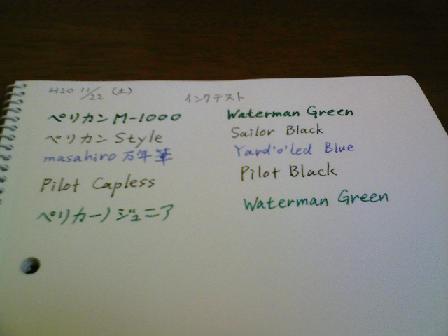 H20 11/22 (土)
インクテスト
ペリカン M-1000 Waterman Green
ペリカン Style Sailor Black
masahiro 万年筆 Yard'o'led Blue
Pilot Capless Pilot Black
ペリカーノジュニア Waterman Green